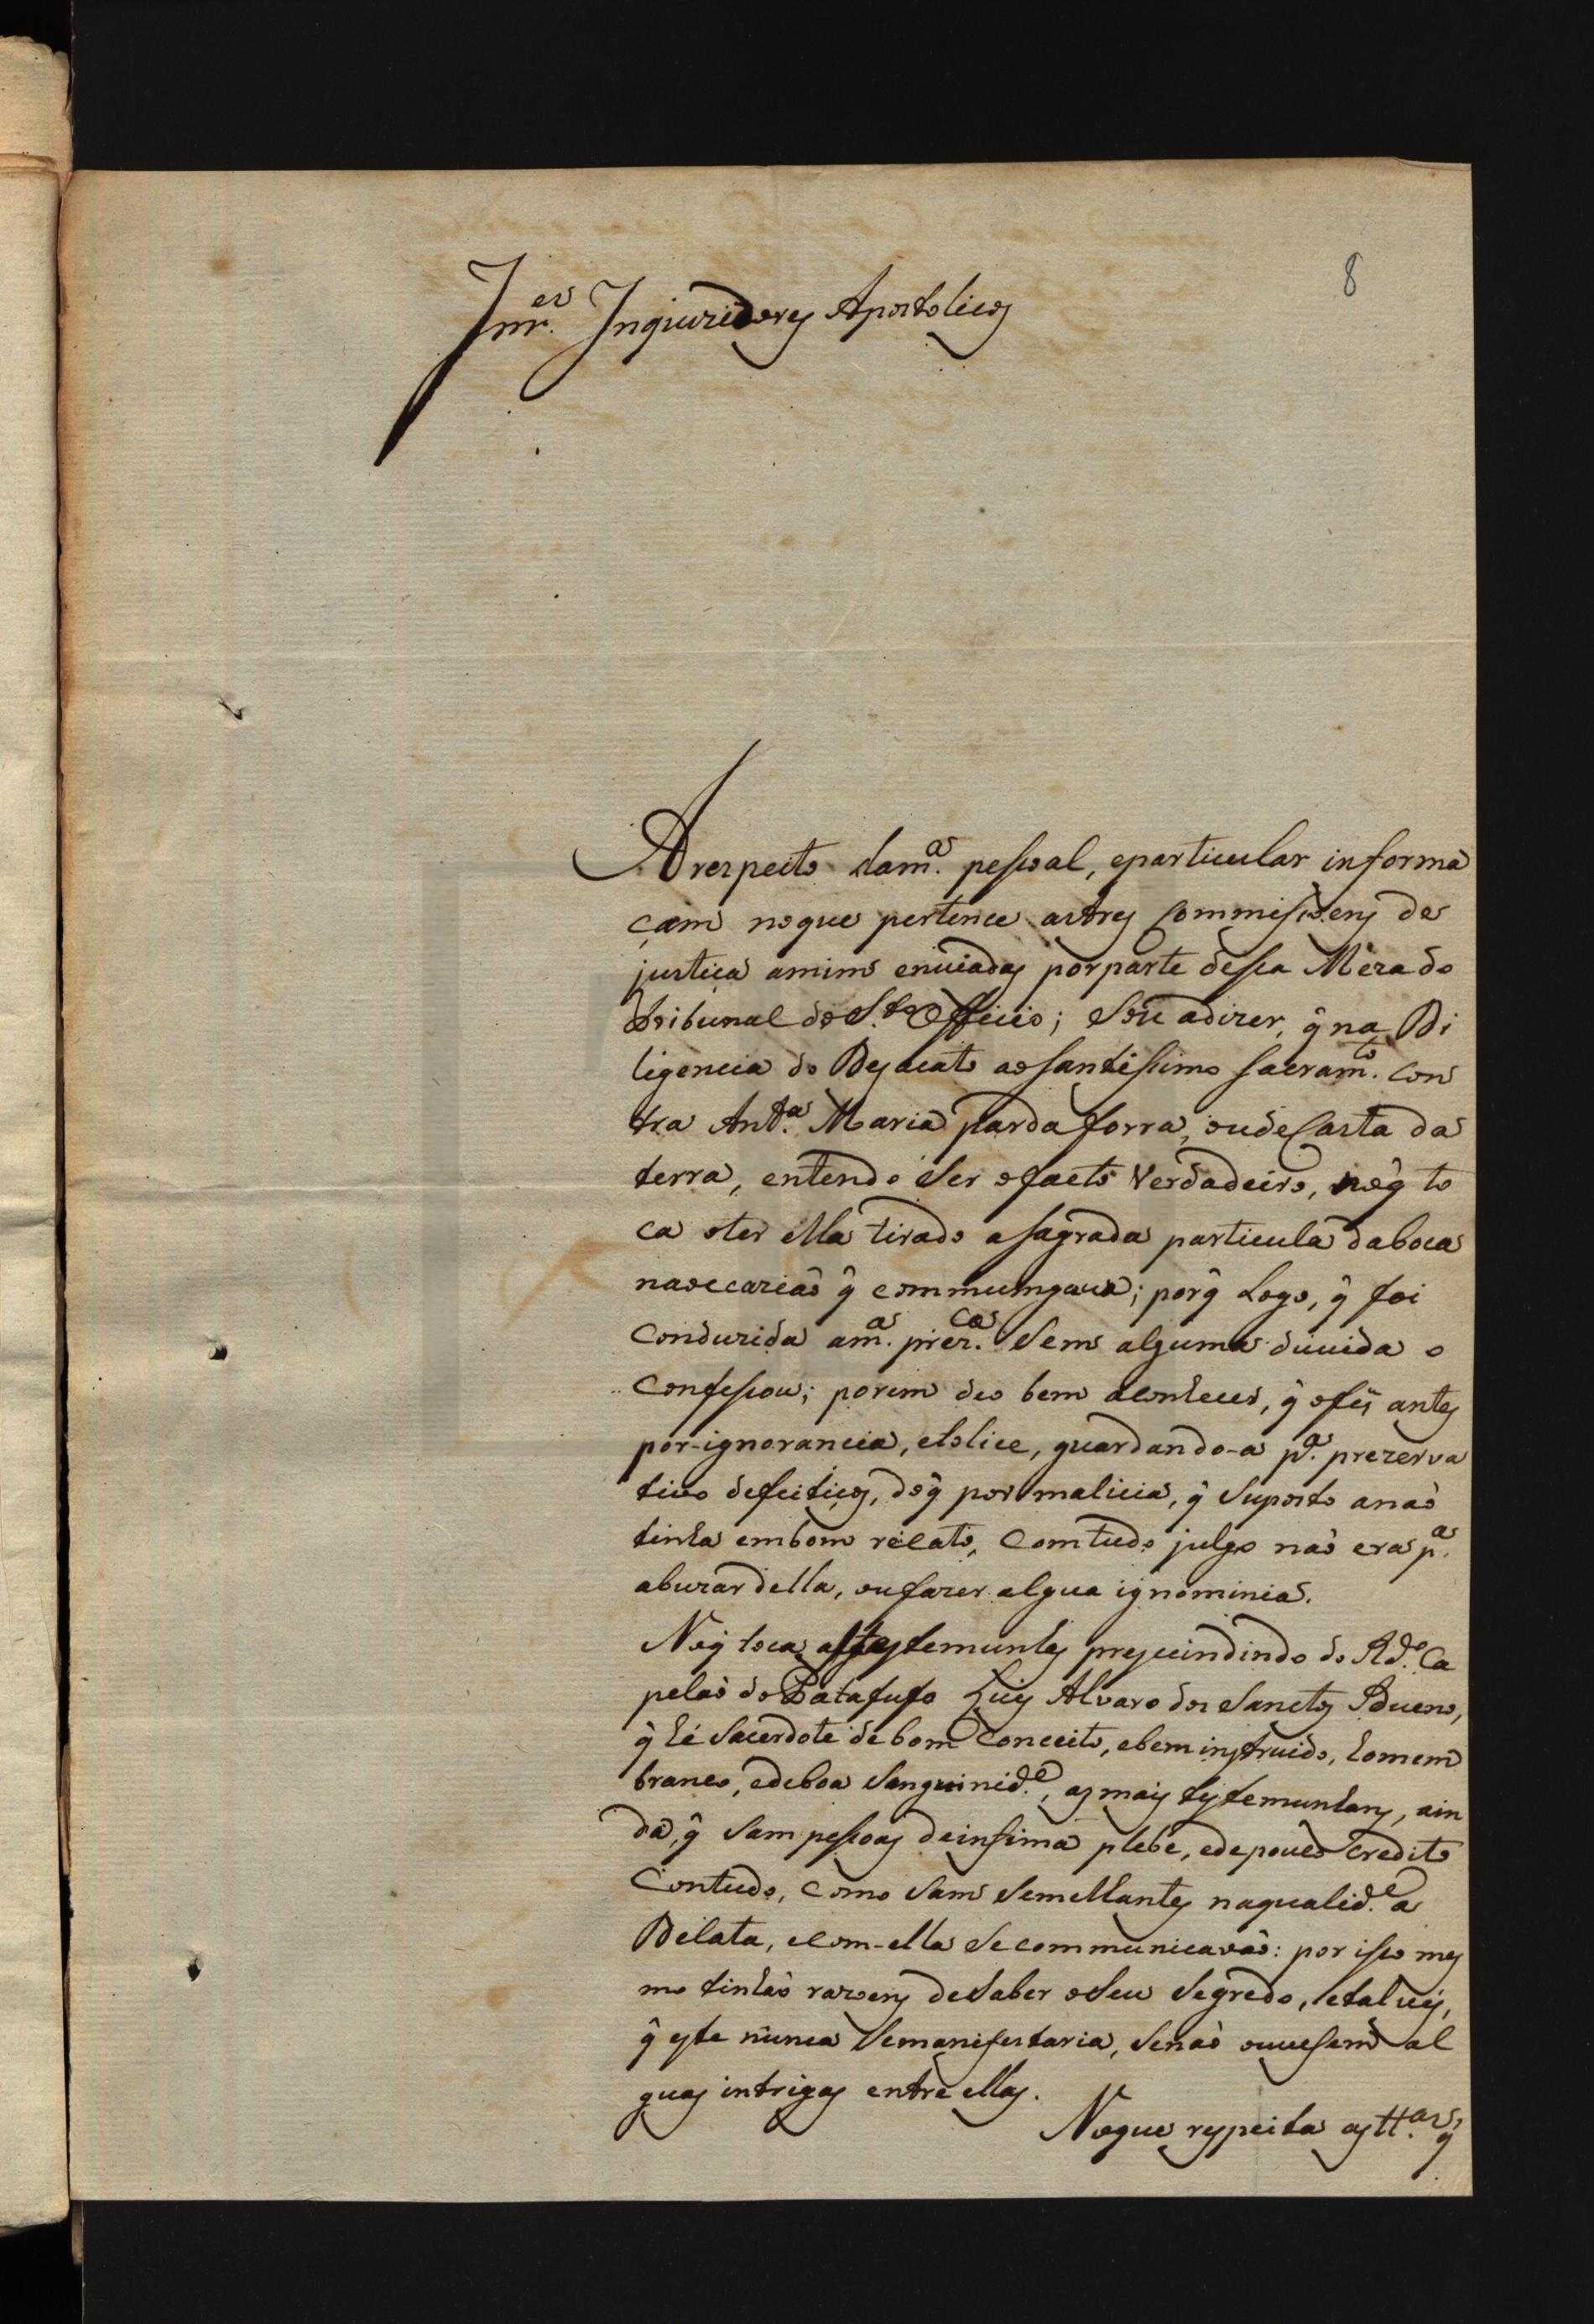 8
Snr.es Inquizidores Apostolicos
A respeito dam.a pessoal, eparticular informa
çam noque pertence astres Commissoens de
justiça amim enviadas porparte dessa Meza do
Tribunal do S.to Officio; Sou adizer, q̃ na Di
ligencia do Desacato aosantissimo sacram.to con
tra Ant.a Maria parda forra, oudeCasta da
terra, entendo Ser ofacto verdadeiro, nóq̃ to
ca oter ella tirado asagrada particula daboca
naoccaziaõ q̃ commungava; porq̃ Logo, q̃ foi
Conduzida am.a prez.ca Sem alguma duvida o
Confessou; porem deo bem aconhecer, q̃ ofes antes
por-ignorancia, etolice, guardando-a p.a prezerva
tivo defeitiços, doq̃ por malicia, q̃ Suposto anaõ
tinha embom recato, Comtudo julgo naõ era p.a
abuzar della, oufazer algua ignominia.
Noq̃ toca astestemunhas prescindindo do Rd.o Ca
pelaõ do Patafufo Luis Alvaro dos Sanctos Bueno,
q̃ hé Sacerdote de bom Conceito, ebem instruido, homem
branco, edeboa Sanguinid.e, as mais testemunhas, ain
da, q̃ Sam pessoas deinfima plebe, edepouco credito
Contudo, Como Sam Semelhantes naqualid.e a
Delata, ecom-ella Secommunicavaõ: por isso mes
mo tinhaõ razoens deSaber oSeu Segredo, etalves,
q̃ este nunca Semanifestaria, Senaõ ouvesem al
guas intrigas entre ellas.
Noque respeita as tt.as, q̃